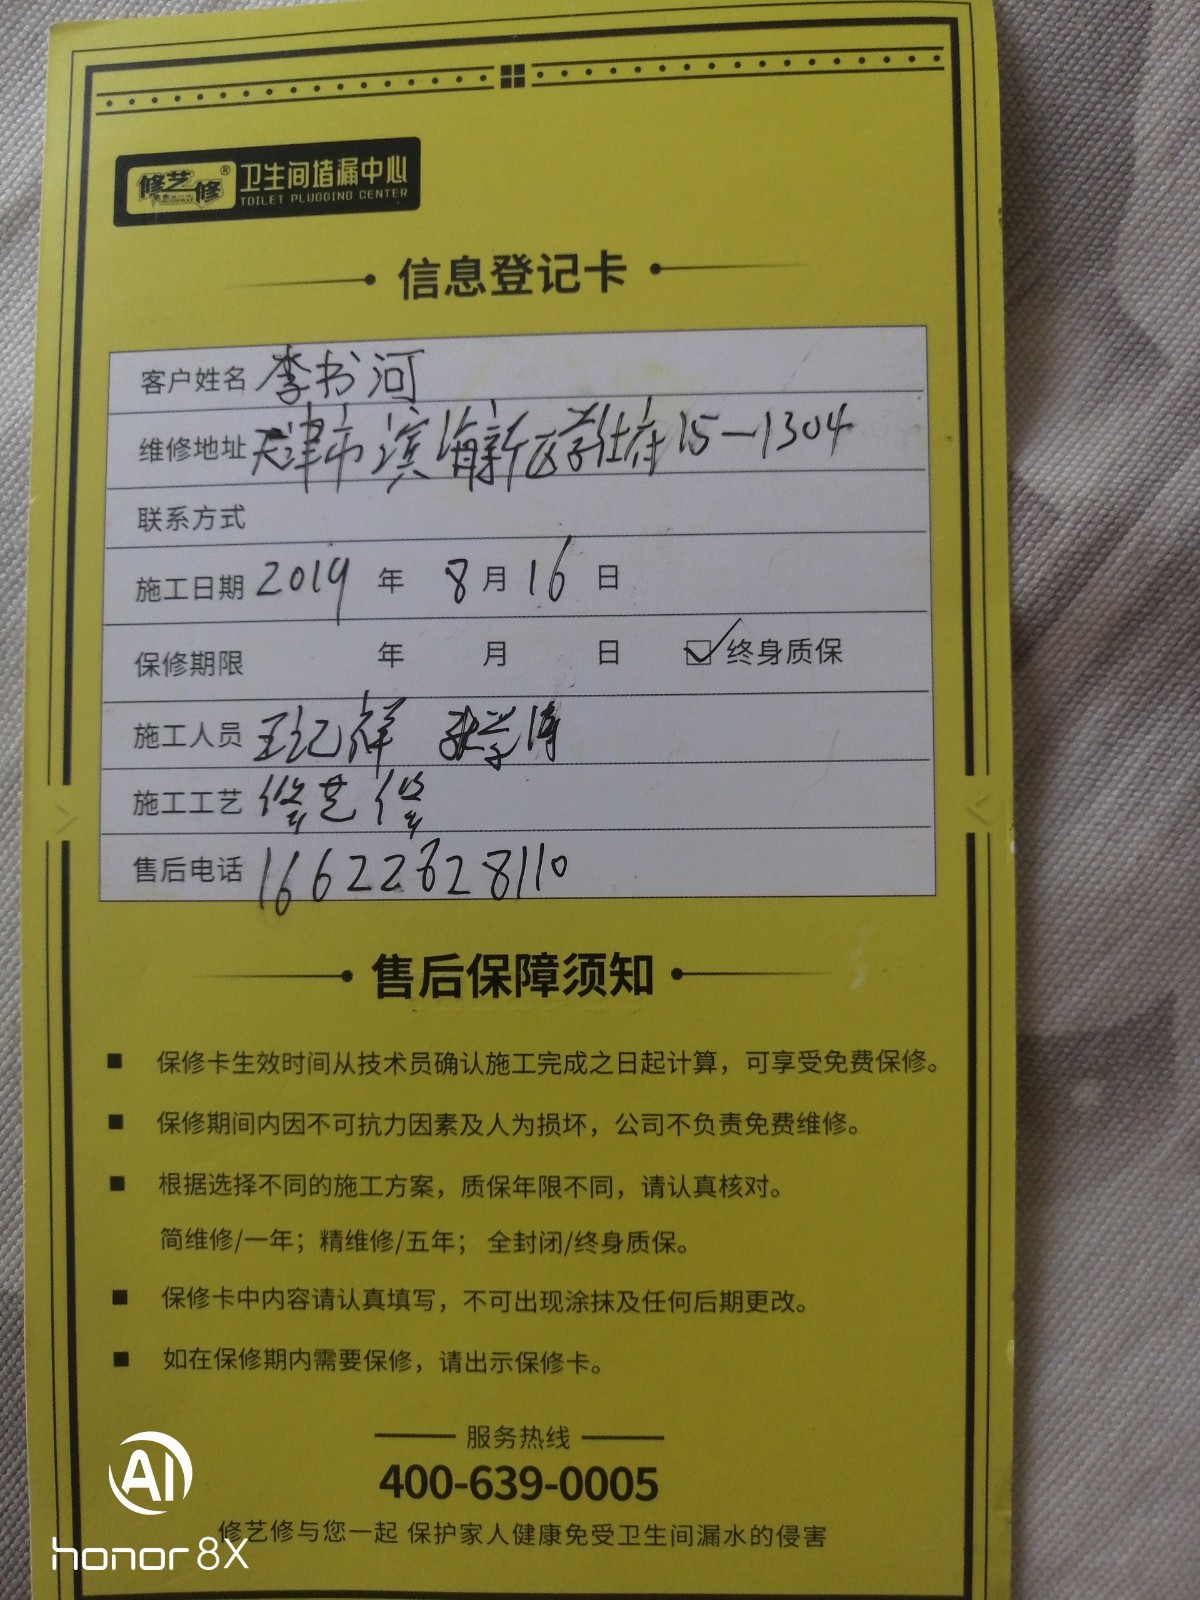 修艺修® 卫生间堵漏中心
TOILET PLUGGING CENTER
信息登记卡
客户姓名 李书河
维修地址 天津市滨海新区学仕府15-1304
联系方式
施工日期 2019 年 8 月 16 日
保修期限 年 月 日 ☑ 终身质保
施工人员 王记祥 张学涛
施工工艺 修艺修
售后电话 16622628110
售后保障须知
■ 保修卡生效时间从技术员确认施工完成之日起计算，可享受免费保修。
■ 保修期间内因不可抗力因素及人为损坏，公司不负责免费维修。
■ 根据选择不同的施工方案，质保年限不同，请认真核对。
简维修/一年；精维修/五年； 全封闭/终身质保。
■ 保修卡中内容请认真填写，不可出现涂抹及任何后期更改。
■ 如在保修期内需要保修，请出示保修卡。
服务热线
400-639-0005
修艺修与您一起 保护家人健康免受卫生间漏水的侵害
AI
honor 8X